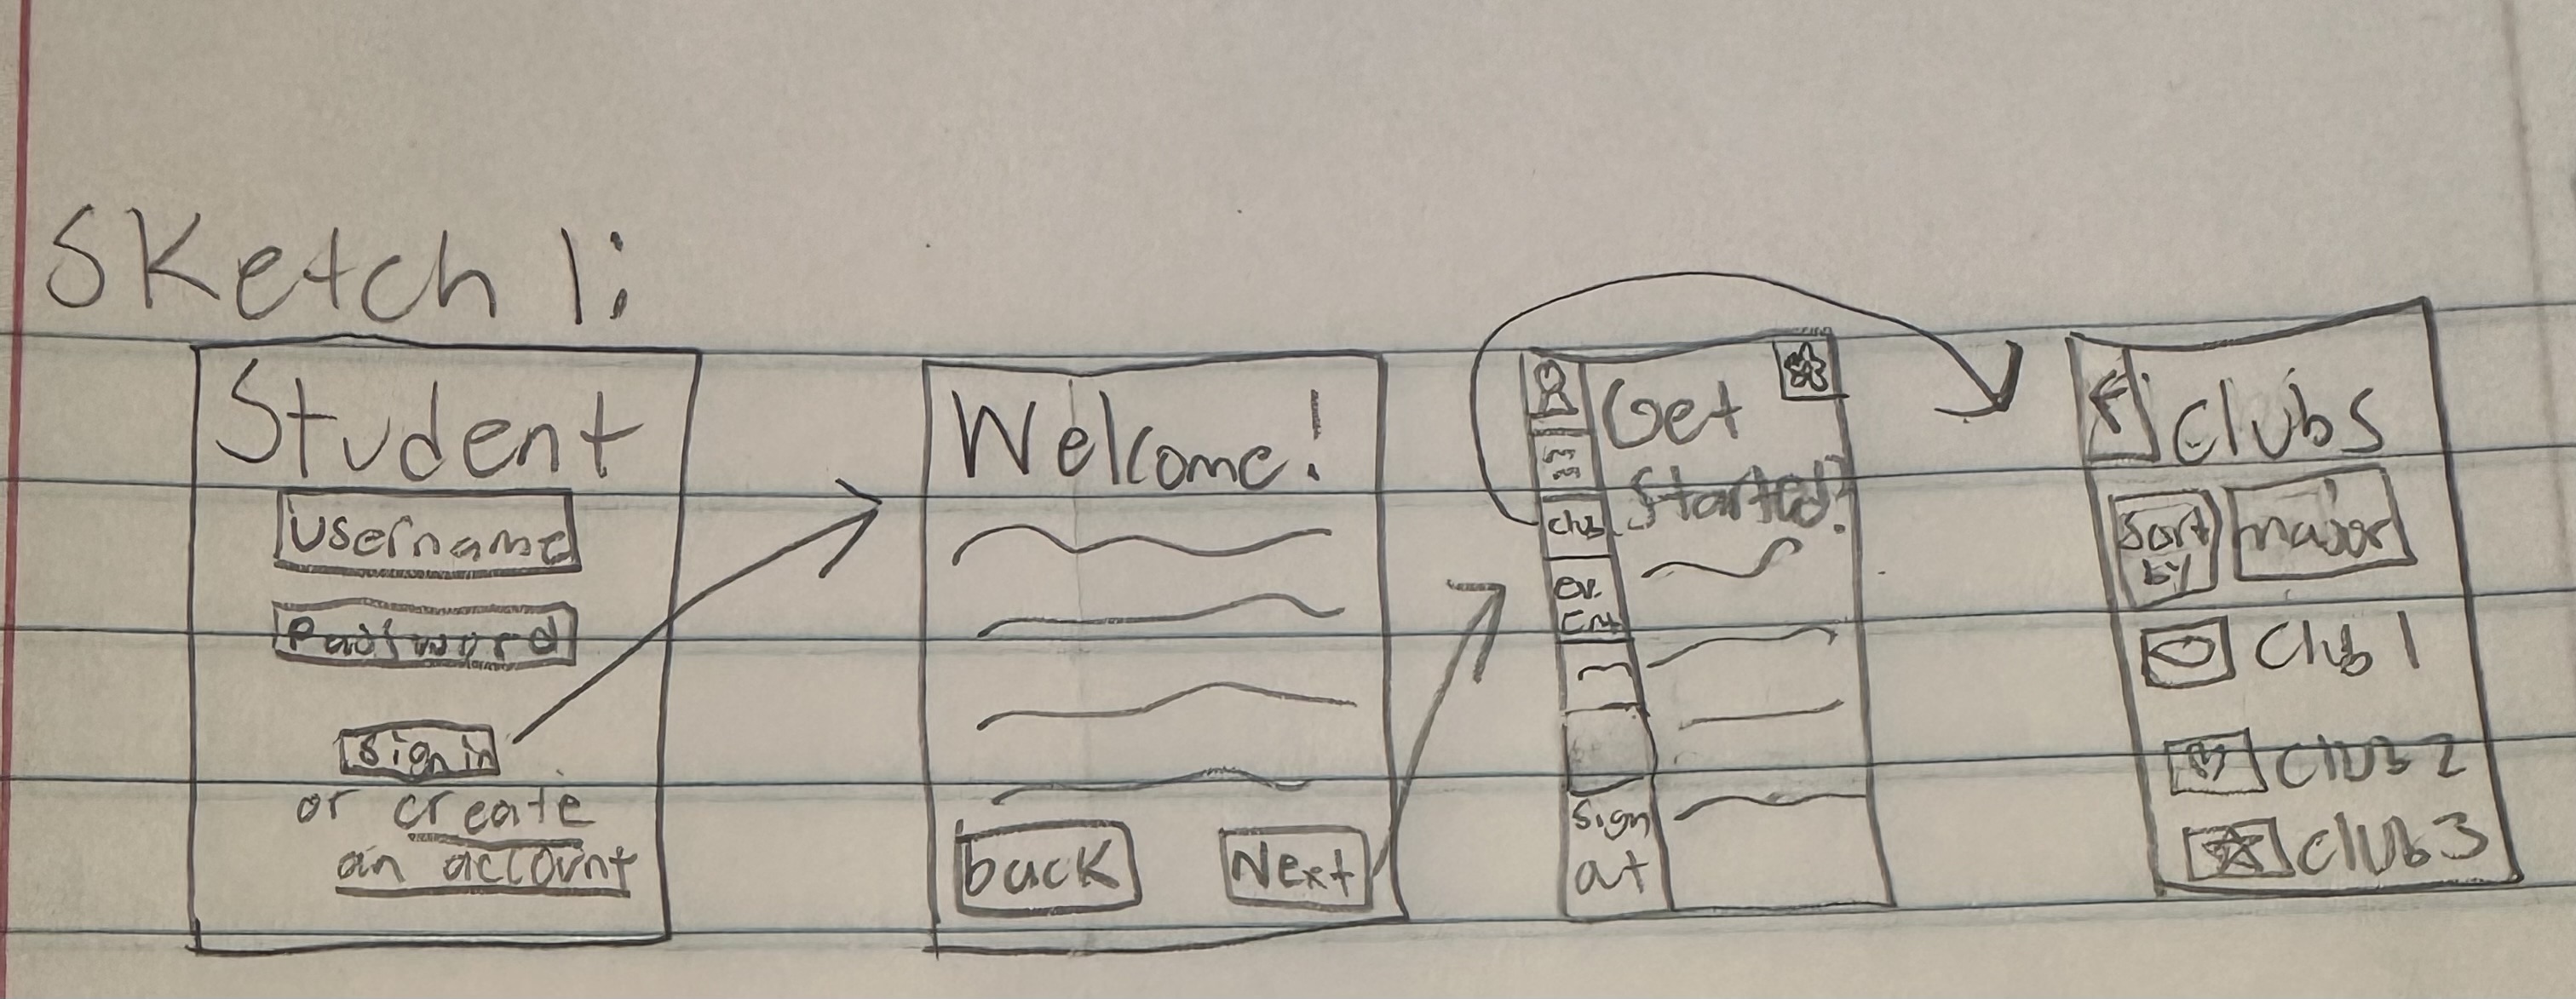 Sketch 1:
Student
Username
Password
Sign in
or create
an account
Welcome!
back
Next
Get
Started!
club
ev
ent
sign
out
clubs
Sort
by
major
Club 1
Club 2
club 3